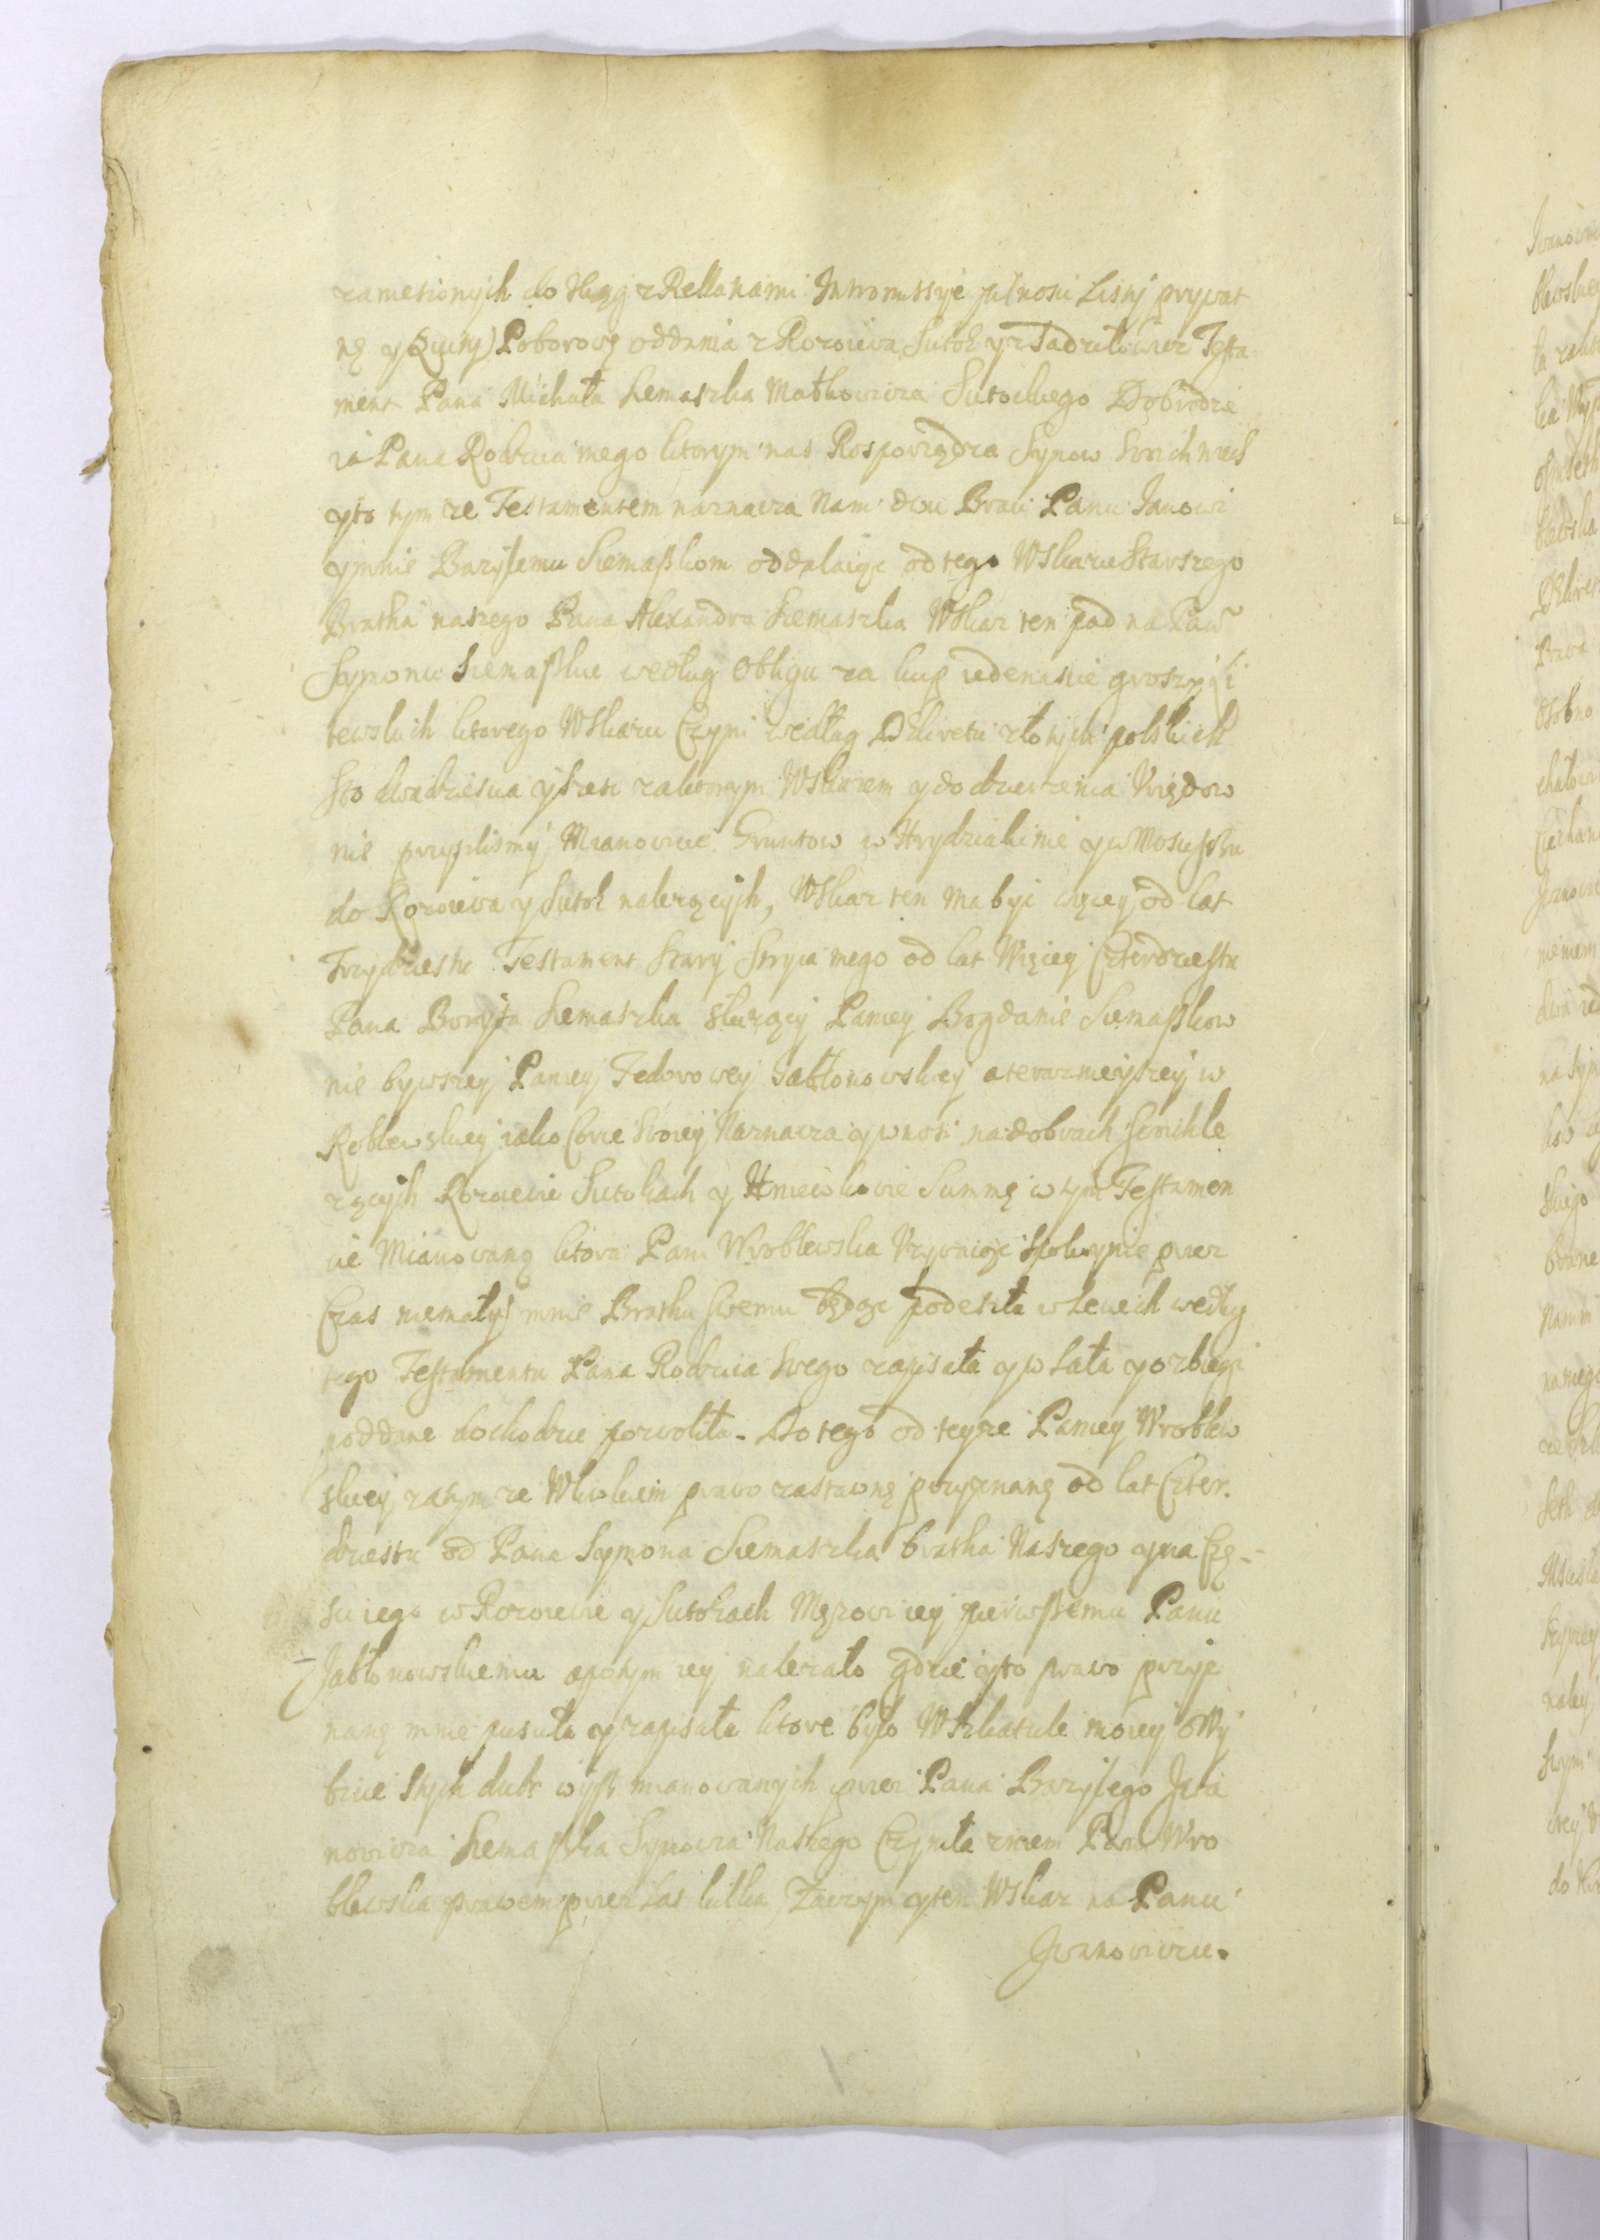 zametionych do Xiąg z Rellanami Intromissye pilnosci Listy prywat
ne y Quity Poborowe oddania z Korciewa Sutok y z Tadzulewicz Testa
ment Pana Michała Siemaszka Matkowicza Sutockiego Dobrodzie
ia Pana Rodzica mego ktorym nas Rosporządza Synow Swich
yto tym ze Testamentem naznacza Nam dwu Braci Panu Janowi
ymnie Bazylemu Siemaszkom oddalaiąc od tego Wskazu Starszego
Bratha naszego Pana Alexandra Siemaszka Wskaz ten pod na Panu
Szymonu Siemaszku według Obligu za kup iedenascie groszy li
tewskich ktorego Wskazu Czyni według Dekretu złotych polskich
Sto dwadziescia y szesc za ktorym Wskazem y do dzierzenia Vrzędow
nie przyszlismy Mianowicie Gruntow w Hrydziakinie y w
do Korciewa y Sutok nalezących, Wskaz ten ma byc więcey od lat
Trzydziestu Testament Stary Stryia mego od lat Więcey Czterdziestu
Pana Borysa Siemaszka słuzący Paniey Bogdanie Siemaszkow
nie bywszey Paniey Fedorowey Jabłonowskiey a teraznieyszey W
roblewskiey iako Corce Swoiey Naznacza y wnosi na dobrach Swoich le
zących Korciewie Sutokach y Hniewkowie Summę w tym Testamen
cie Mianowaną ktora Pani Wroblewska Vzywaiąc Spokoynie przez
Czas niemały mnie Brathu Swemu będąc podeszła w leciech według
tego Testamentu Pana Rodzica Swego zapisała y
poddane dochodzic pozwoliła. Do tego od teyze Paniey Wroblew
skiey za tym ze Wlewkiem prawo zastawne przyznane od lat Czter.
dziestu od Pana Szymona Siemaszka bratha Naszego yna Czę-
sci iego w Korciewie y Sutokach Męzowi iey pierwszemu Panu
Jabłonowskiemu apotym iey nalezało gdzie yto prawo przyz
nane mnie pusciła y zapisała ktore było W Szkatule moiey o Wy
bicie Stych dubr wyzy mianowanych przez Pana Bazylego Jwa
nowicza Siemaszka Synowca Naszego Czyniła Pani Wro
blewska prawem przez Lat kilka, Zaczym y ten Wskaz na Panu
Jwanowiczu.